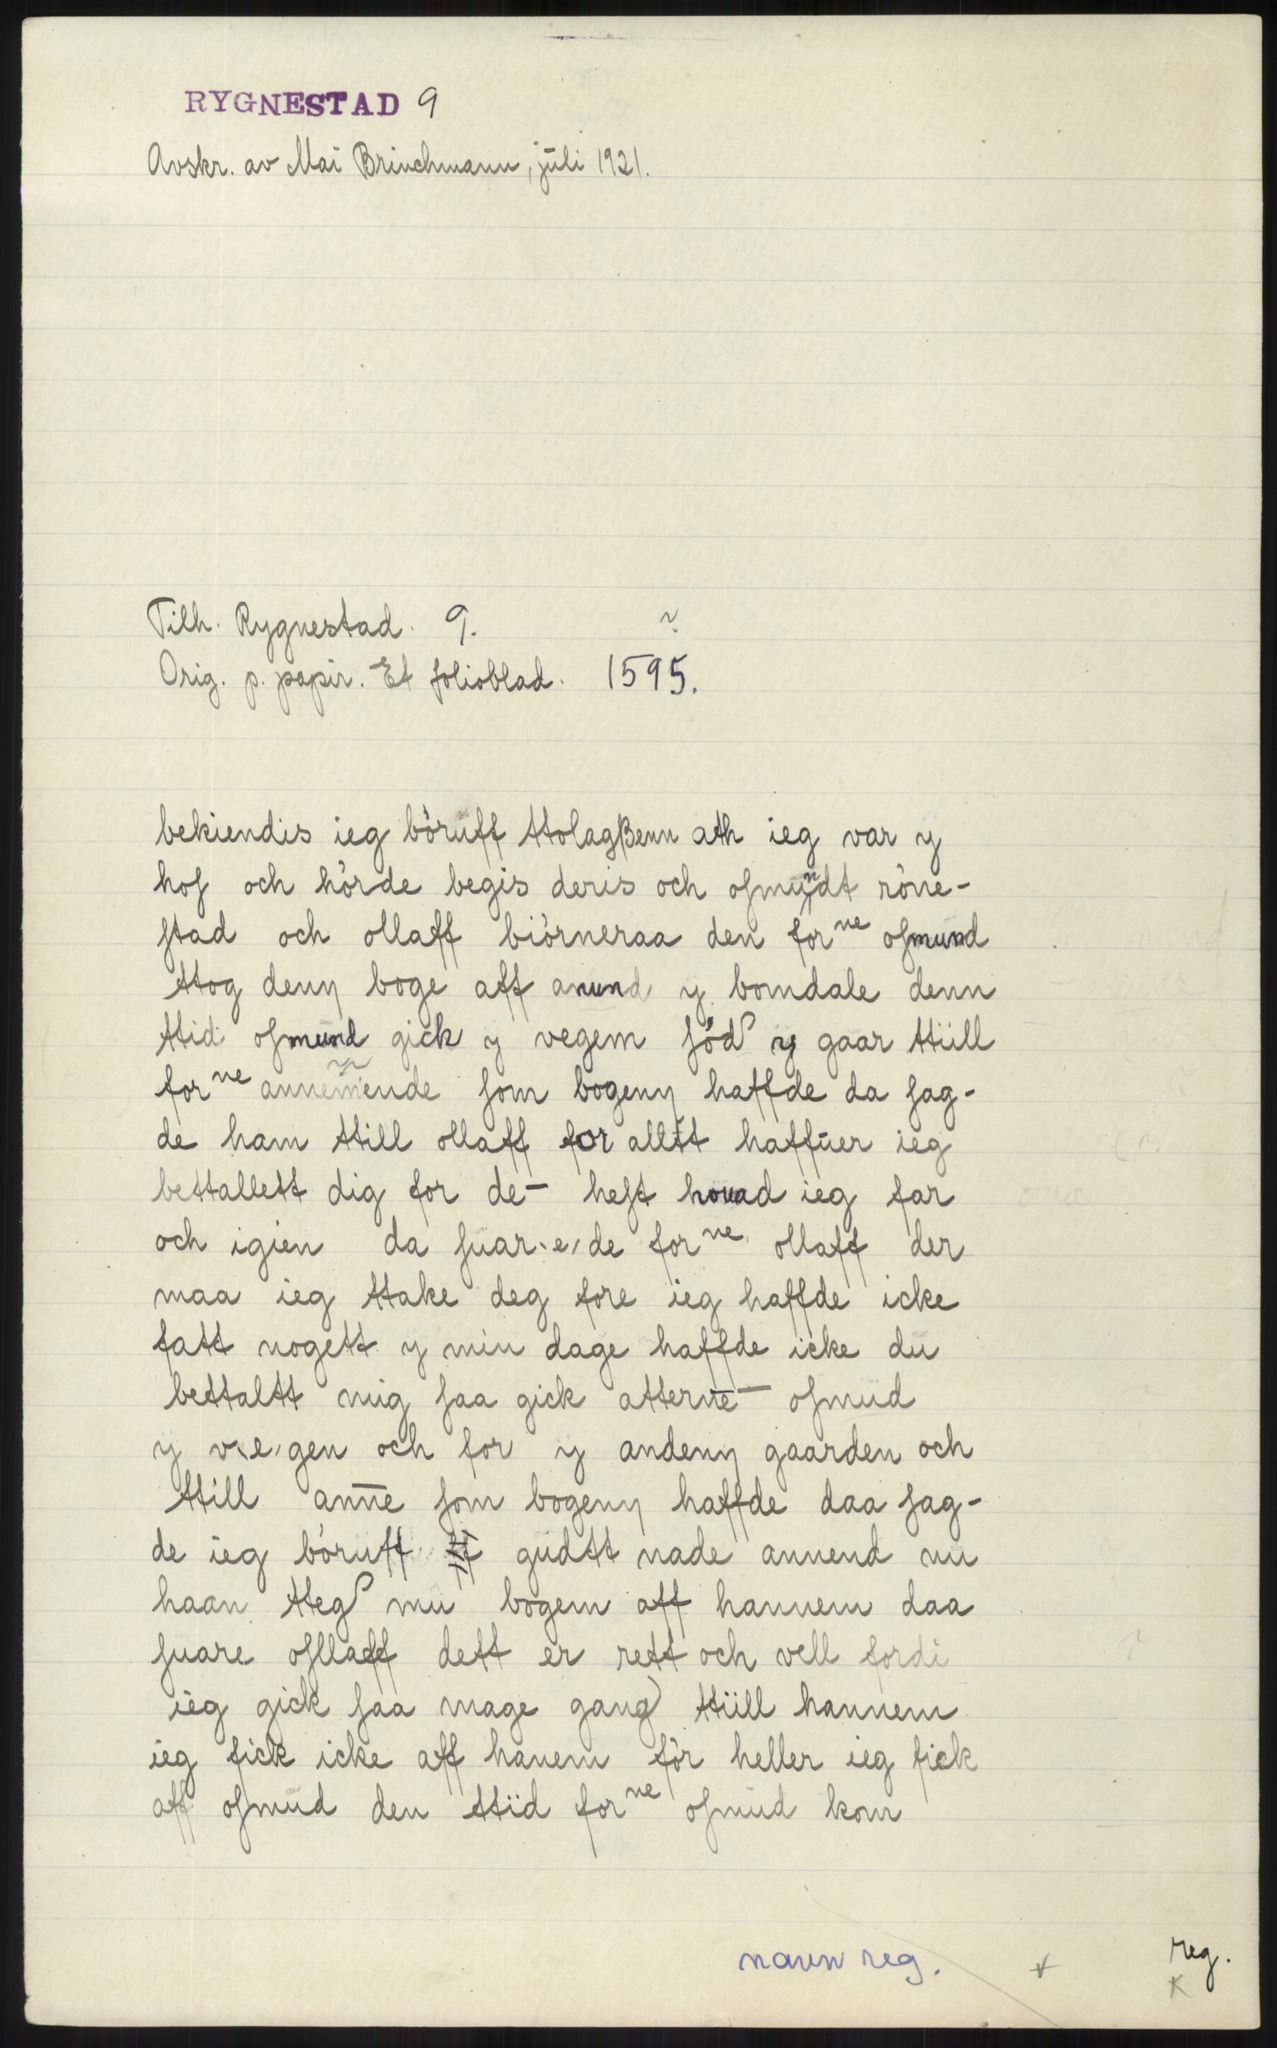 RYGNESTAD 9
Avskr. av Mai Brinchmann, juli 1921.
Tilh. Rygnestad. 9. ~
Orig. p. papir. Et folioblad. 1595.
bekiendis ieg bòruff ttolagßenn ath ieg var y
hof och hòrde begis deris och osmundt ròne-
stad och ollaff biòrneraa den forⁿᵉ osmund
ttog denn boge aff anund y bomdale denn
ttid osmund gick y vegem sòd y gaar ttiill
forⁿᵉ annemende som bogenn haffde da sag-
de ham ttill ollaff for alltt haffuer ieg
bettallett dig for de- hest houad ieg far
och igien da suar,e,de forⁿᵉ ollaff der
maa ieg ttake deg fore ieg haffde icke
fatt nogett y min dage haffde icke du
bettaltt mig saa gick atterne- osmud
y v,e,gen och for y andenn gaarden och
ttill anne som bogenn haffde daa sag-
de ieg bòruff gudtt nade annend nu
haan tteg mu bogem aff hannem daa
suare osllaff dett er rett och vell fordi
ieg gick saa mage gang ttiill hannem
ieg fick icke aff hanem fòr heller ieg fick
aff osmud den ttid forⁿᵉ osmud kom
navn reg.
reg.